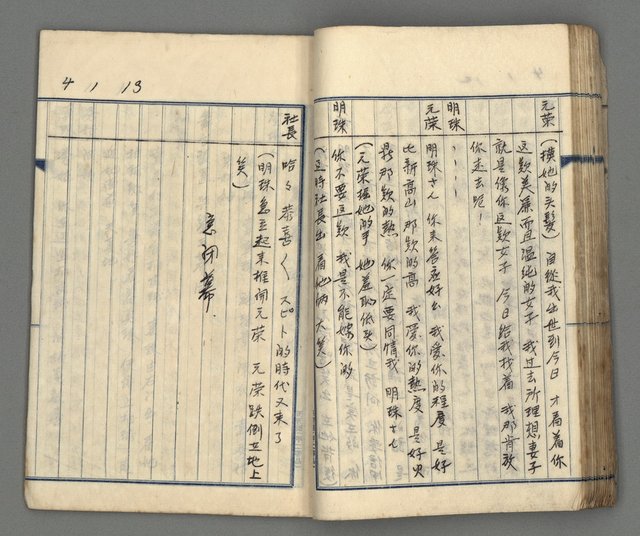 元荣 (摸她的头髮) 自從我出世到今日 才看着你
這欵美麗而且溫純的女子 我过去所理想妻子
就是像你這欵女子 今日給我找着 我那肯放
你走去呢！
明珠 、、、、
元荣 明珠さん 你来答应好么 我爱你的程度 是好
比新高山 那欵的高 我爱你的熱度 是好
是那欵的熱 你一定要同情我 明珠さん
(元荣 她的手 她羞恥低头)
明珠 你不要這欵 我是不能嫁你的
(這時社長出 看她俩 大笑)
4 1 13
社長 哈々 恭喜〱 スピート的時代又来了
(明珠急立起来推開元荣 元荣跌倒在地上
笑)
急闭幕